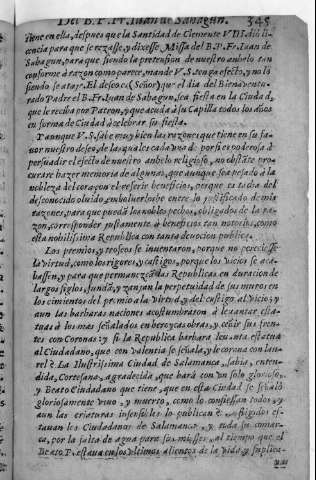 Del B. P. Fr. Iuan de Sahagun. 345
Tiene en ella, despues que la Santidad de Clemente VIII. diò li-
cencia para que se rezasse, y dixesse Missa del B. P. Fr. Iuan de
Sahagun, para que siendo la pretension de nuestro anhelo tan
conforme à razon como parece, mande V. S. tenga efecto, y no lo
siendo se ataje. El desseo es (Señor) que el dia del Bienaventu-
rado Padre el B. Fr. Iuan de Sahagun, sea fiesta en la Ciudad,
que le reciba por Patron, y que acuda à su Capilla todos los años
en forma de Ciudad à celebrar su fiesta.
Y aunque V. S. sabe muy bien las razones que tiene en su fa-
uor nuestro desseo, de las quales cada vna de por si es poderosa à
persuadir el efecto de nuestro anhelo religioso, no obstāte pro-
curarè hazer memoria de algunas, que aunque sea pesado à la
nobleza del coraçon el referir beneficios, porque es tacha del
desconocido oluido, embolverlos entre lo justificado de mis
razones, para que puedā los nobles pechos, obligados de la ra-
zon, corresponder justamente à beneficios tan notorios, como
esta nobilissima Republica con tanta deuocion publica.
Los premios, y trofeos se inuentaron, porque no perecie sse
la virtud, como los rigores, y castigos, porque los vicios se aca-
bassen, y para que permanezcā las Republicas en duracion de
largos siglos, fundā, y zanjan la perpetuidad de sus muros en
los cimientos del premio à la virtud, y del castigo al vicio; y
aun las barbaras naciones acostumbraron à leuantar esta-
tuas à los mas señalados en heroycas obras, y ceñir sus fren-
tes con Coronas: y si la Republica barbara leuanta estatua
al Ciudadano, que con valentia se señala, y le corona con lau-
rel è. La Ilustrissima Ciudad de Salamanca, sabia, enten-
dida, Cortesana, agradecida, què harà con vn solo glorioso,
y Beato Ciudadano que tiene, que en esta Ciudad se señalò
gloriosamente viuo, y muerto, como lo confiessan todos, y
aun las criaturas insensibles lo publican è.
tauan los Ciudadanos de Salamanca, y toda su comar-
ca, por la falta de agua para sus miesses, al tiempo que el
Beato P. estaua en los vltimos alientos de la vida, y suplica-